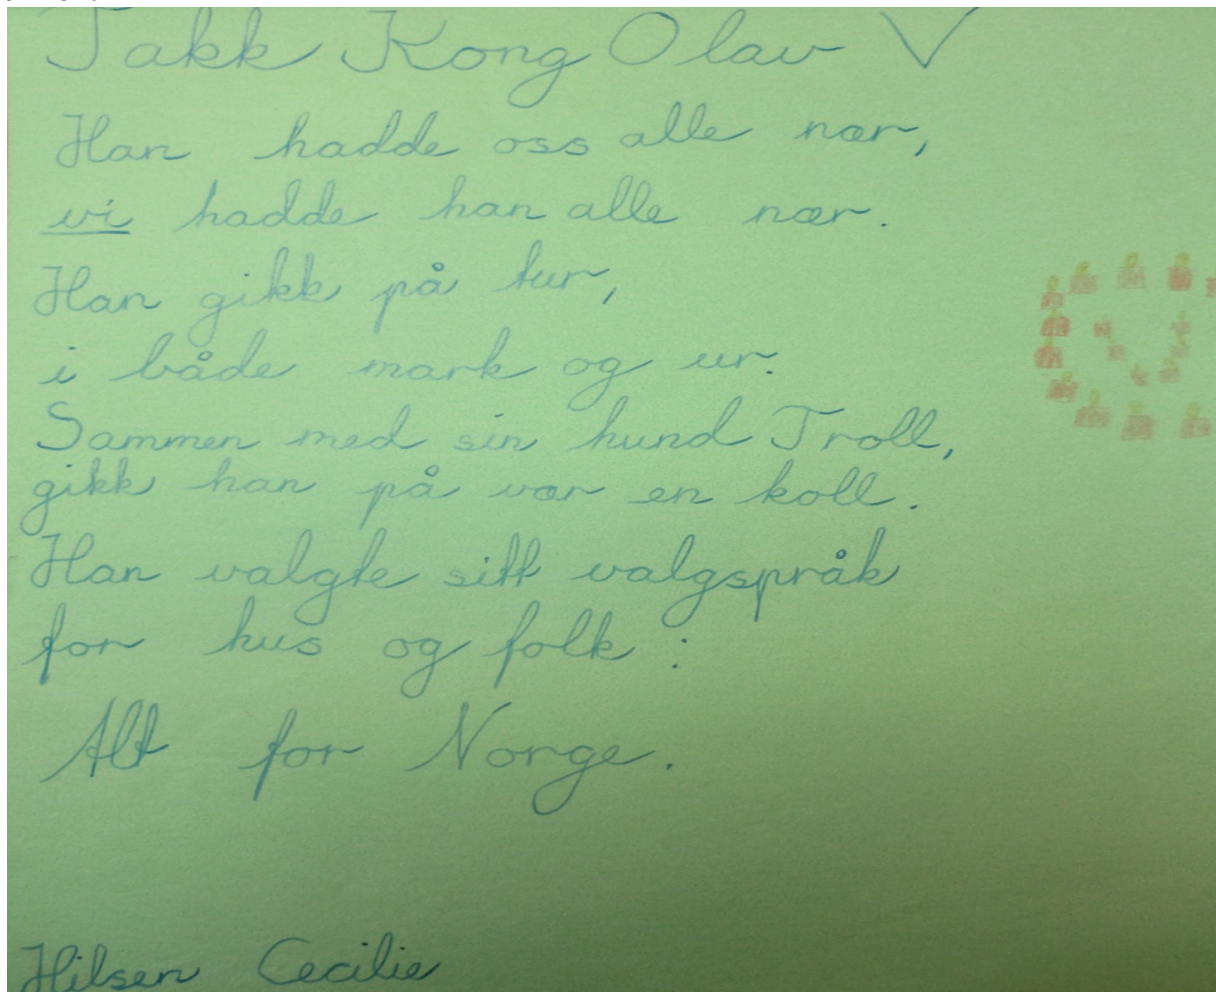 Takk Kong Olav V
Han hadde oss alle nær,
vi hadde han alle nær.
Han gikk på tur,
i både mark og ur.
Sammen med sin hund Troll,
gikk han på vær en koll.
Han valgte sitt valgspråk
for hus og folk :
Alt for Norge.
Hilsen Cecilie